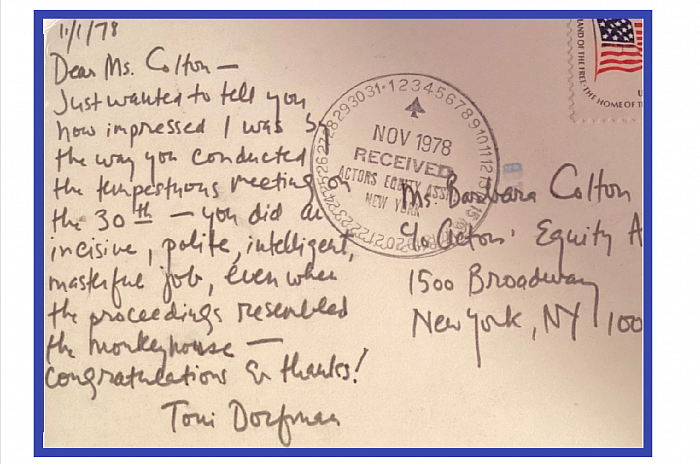 11/1/78
Dear Ms. Colton —
Just wanted to tell you
how impressed I was by
the way you conducted
the tempestuous meeting on
the 30th — you did an
incisive, polite, intelligent,
masterful job, even when
the proceedings resembled
the monkeyhouse —
congratulations & thanks!
Toni Dorfman
28 29 30 31 · 1 2 3 4 5 6 7 8 9 10 11 12
NOV 1978
RECEIVED
ACTORS EQUITY ASSN
NEW YORK
Ms. Barbara Colton
c/o Actors' Equity A
1500 Broadway
New York, NY 100
LAND OF THE FREE · THE HOME OF T